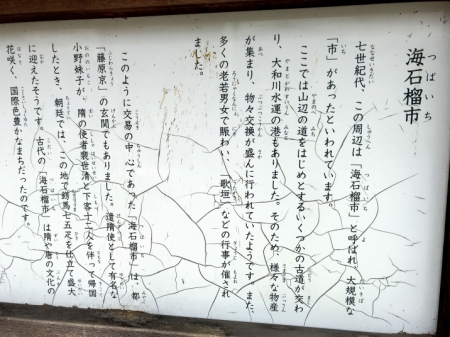 海石榴市
つばいち
七世紀代、この周辺は「海石榴市」と呼ばれ、大規模な
「市」があったといわれています。
ここでは山辺の道をはじめとするいくつかの古道が交わ
り、大和川水運の港もありました。そのため、様々な物産
が集まり、物々交換が盛んに行われていたようです。また、
多くの老若男女で賑わい、「歌垣」などの行事が催され
ました。
このように交易の中心であった「海石榴市」は、都
「藤原京」の玄関でもありました。遣隋使として有名な
小野妹子が、隋の使者裴世清と下客十二人を伴って帰国
したとき、朝廷では、この地で錺馬七五疋を仕立て盛大
に迎えたそうです。古代の「海石榴市」は隋や唐の文化の
花咲く、国際色豊かなまちだったのです。